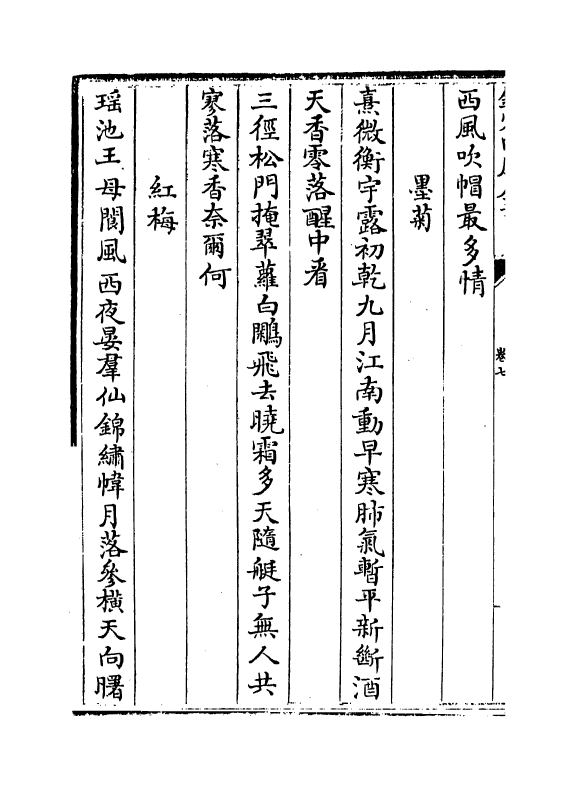 卷七
西風吹帽最多情
墨菊
熹微衡宇露初乾九月江南動早寒肺氣暫平新斷酒
天香零落醒中看
三徑松門掩翠蘿白鷴飛去曉霜多天隨艇子無人共
寥落寒香奈爾何
紅梅
瑶池王母閬風西夜晏羣仙錦繡幃月落參橫天向曙